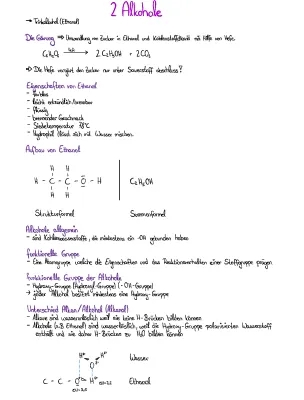 2 Alkohole
→ Trinkalkohol (Ethanol)
Die Gärung ⇒ Umwandlung von Zucker in Ethanol und Kohlenstoffdioxid mit Hilfe von Hefe.
C₆H₁₂O₆ → 2 C₂H₅OH + 2 CO₂
⇒ Die Hefe vergärt den Zucker nur unter Sauerstoff abschluss?
Eigenschaften von Ethanol
- farblos
- leicht entzündlich/brennbar
- flüssig
- brennender Geschmack
- Siedetemperatur 78°C
- Hydrophil (löst sich mit Wasser mischen
Aufbau von Ethanol
H H
H - C - C - O - H
H H
C₂H₅OH
Strukturformel Summenformel
Alkohole allgemein
- sind Kohlenwasserstoffe, die mindestens ein -OH gebunden haben
funktionelle Gruppe
- Eine Atomgruppe, welche die Eigenschaften und das Reaktionsverhalten einer Stoffgruppe prägen.
funktionelle Gruppe der Alkohole
- Hydroxy-Gruppe (Hydroxyl-Gruppe) (-OH-Gruppe)
→ jeder Alkohol besitzt mindestens eine Hydroxy-Gruppe
Unterschied Alkan/Alkohol (Alkanol)
- Alkane sind wasserunlöslich weil sie keine H-Brücken bilden können
- Alkohole (z.B. Ethanol) sind wasserlöslich, weil die Hydroxy-Gruppe polarisierten Wasserstoff
enthält und sie daher H-Brücken zu H₂O bilden können
Wasser
C - C - O H Ethanol